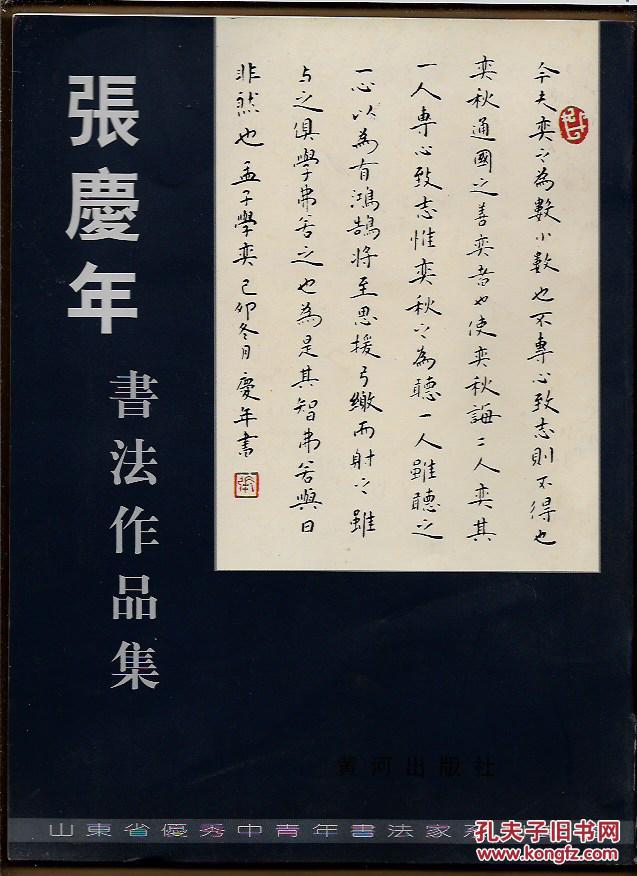 張慶年
書法作品集
今夫奕之為數小數也不專心致志則不得也
奕秋通國之善奕者也使奕秋誨二人奕其
一人專心致志惟奕秋之為聽一人雖聽之
一心以為有鴻鵠將至思援弓繳而射之雖
与之俱學弗若之也為是其智弗若與曰
非然也 孟子學奕 己卯冬月 慶年書
黄河出版社
山東省優秀中青年書法家系
孔夫子旧书网
www.kongfz.com